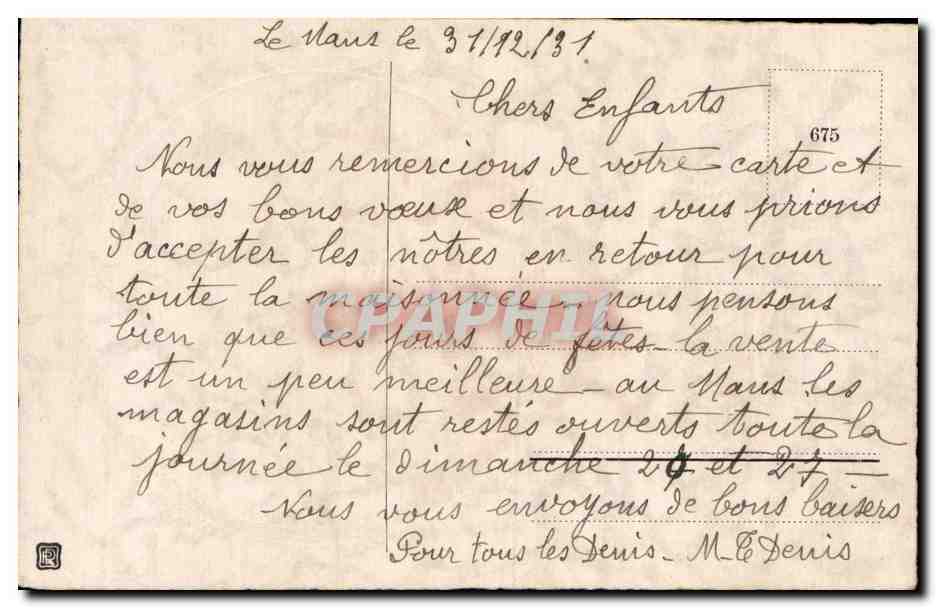 Le Mans le 31/12/31.
Chers Enfants
675
Nous vous remercions de votre carte et
de vos bons vœux et nous vous prions
d'accepter les nôtres en retour pour
toute la maisonnée – nous pensons
bien que ces jours de fêtes – la vente
est un peu meilleure – au Mans les
magasins sont restés ouverts toute la
journée le dimanche 20 et 27 –
Nous vous envoyons de bons baisers
Pour tous les Denis – M-T Denis
CPAPHIL
PR